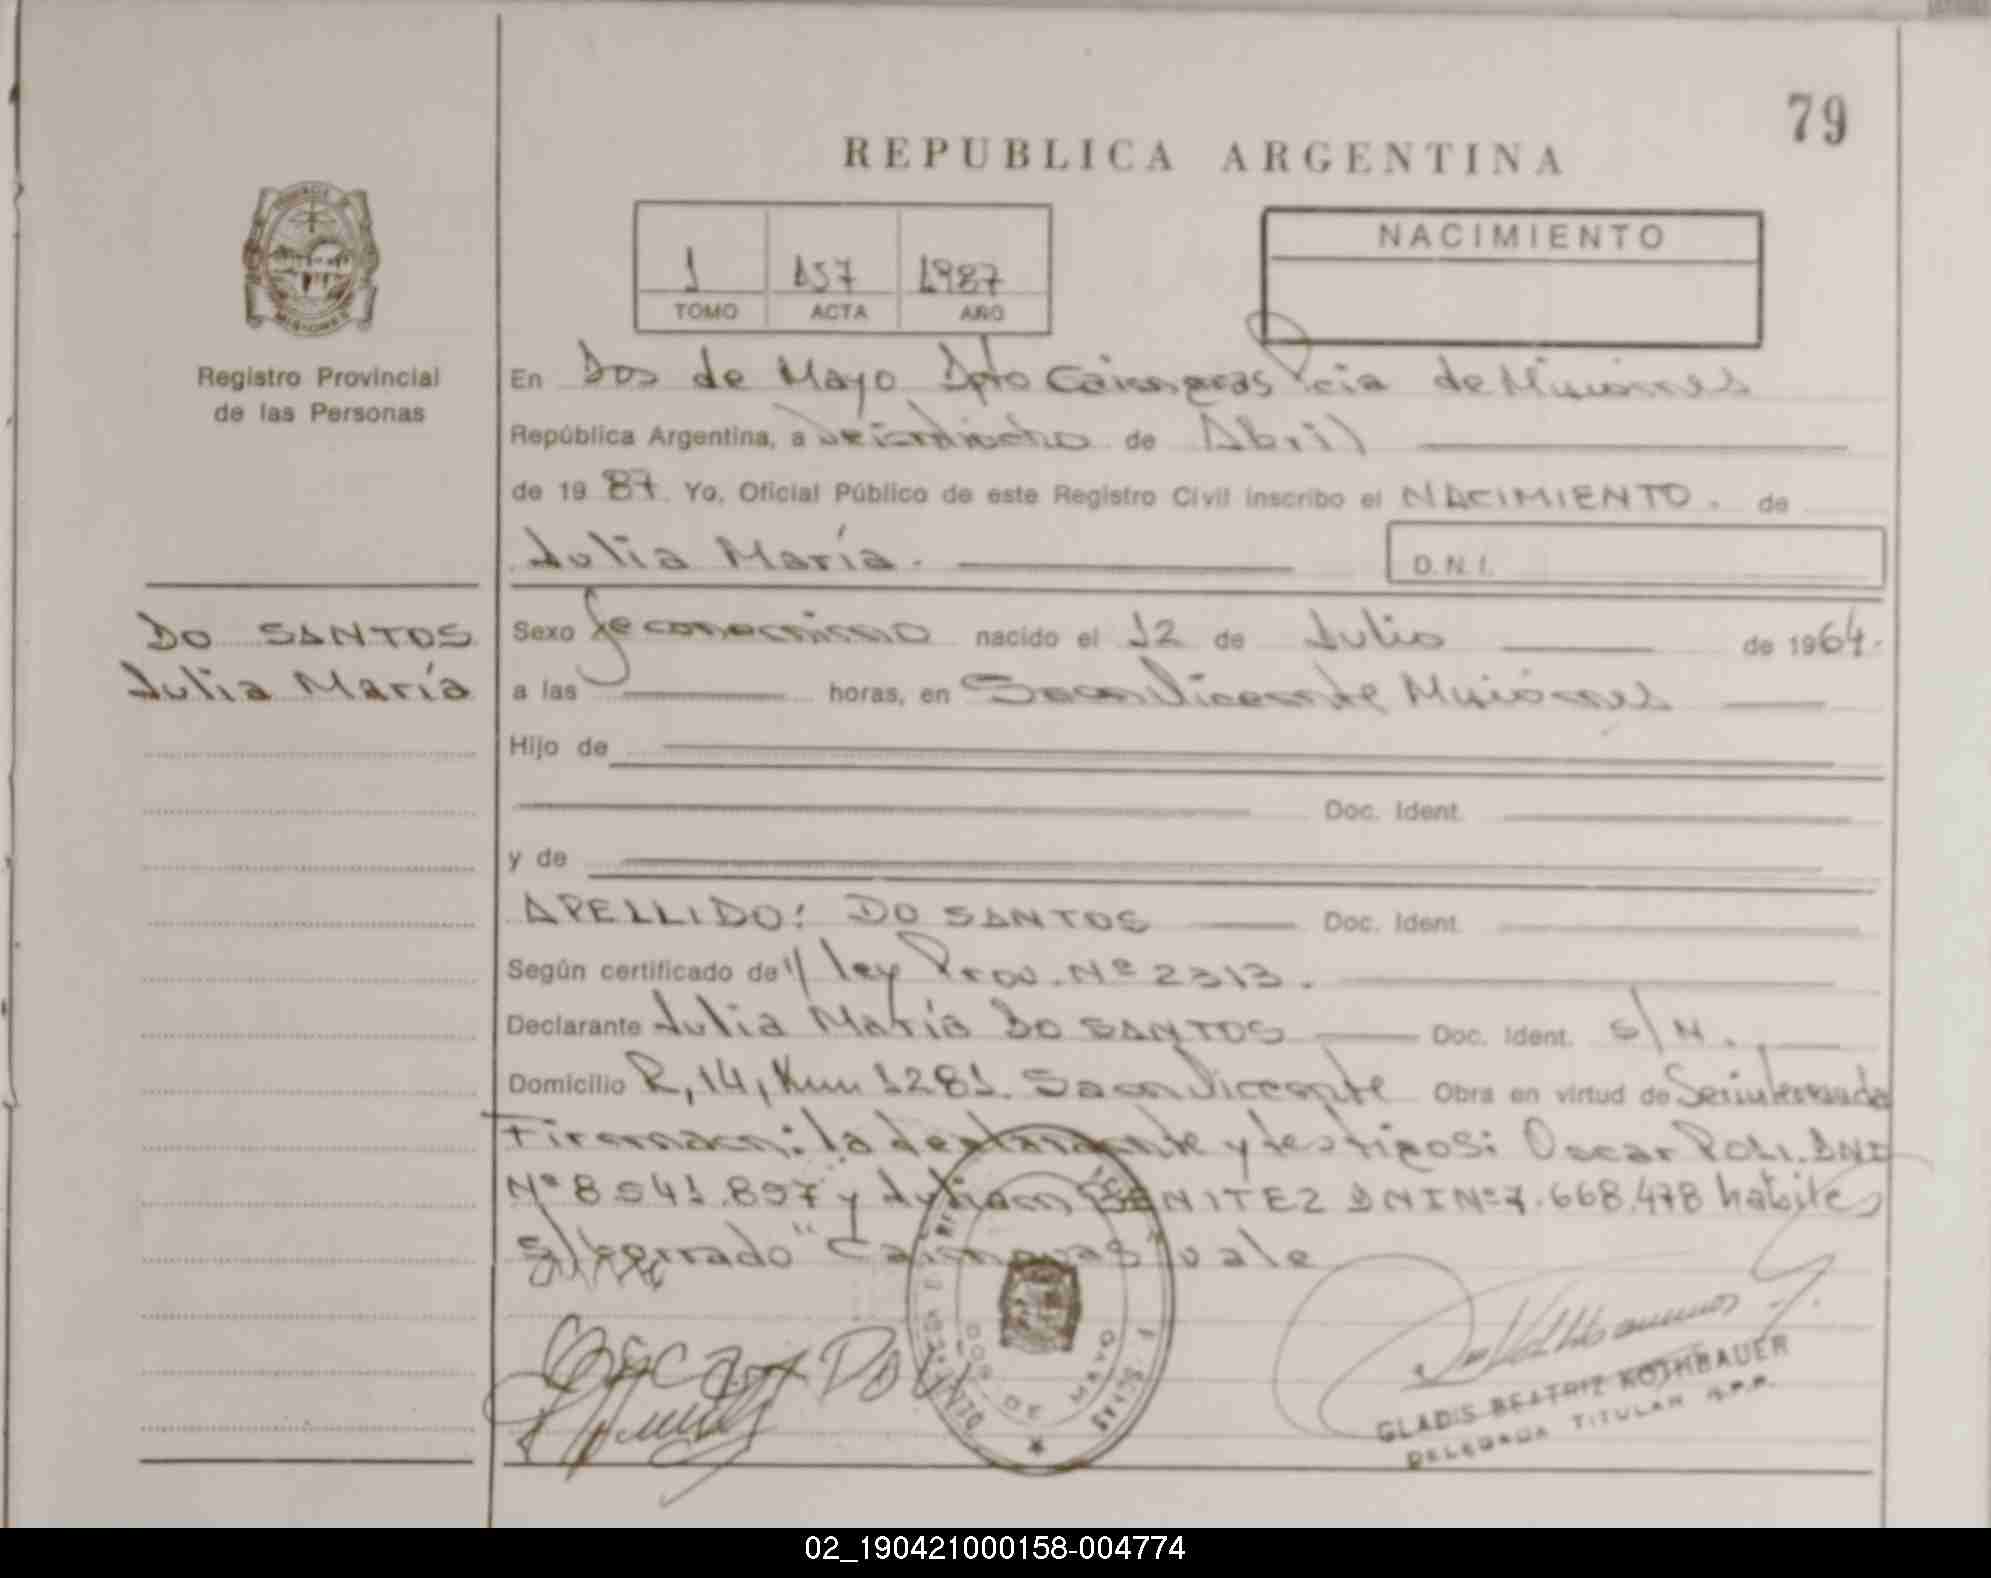 79
REPUBLICA ARGENTINA
MISIONES
Registro Provincial
de las Personas
1 157 1987
TOMO ACTA AÑO
NACIMIENTO
En Dos de Mayo Dpto Cainguas Pcia de Misiones
República Argentina, a Dieciocho de Abril
de 1987. Yo, Oficial Público de este Registro Civil inscribo el NACIMIENTO. de
Julia María.
D.N.I.
DO SANTOS
Julia María
Sexo femenino nacido el 12 de Julio de 1964.
a las horas, en San Vicente Misiones
Hijo de
Doc. Ident.
y de
APELLIDO: DO SANTOS Doc. Ident.
Según certificado de ley Prov. Nº 2313.
Declarante Julia María DO SANTOS Doc. Ident. S/N.
Domicilio R, 14, Km 1281. San Vicente Obra en virtud de
Firman: la declarante y testigos: Oscar POLI. DNI
Nº 8.541.897 y Julian BENITEZ DNI Nº 7.668.478 habiles
S/ borrado "Cainguas" vale
DOS DE MAYO
GLADIS BEATRIZ KOTHBAUER
DELEGADA TITULAR R.P.P.
02_190421000158-004774